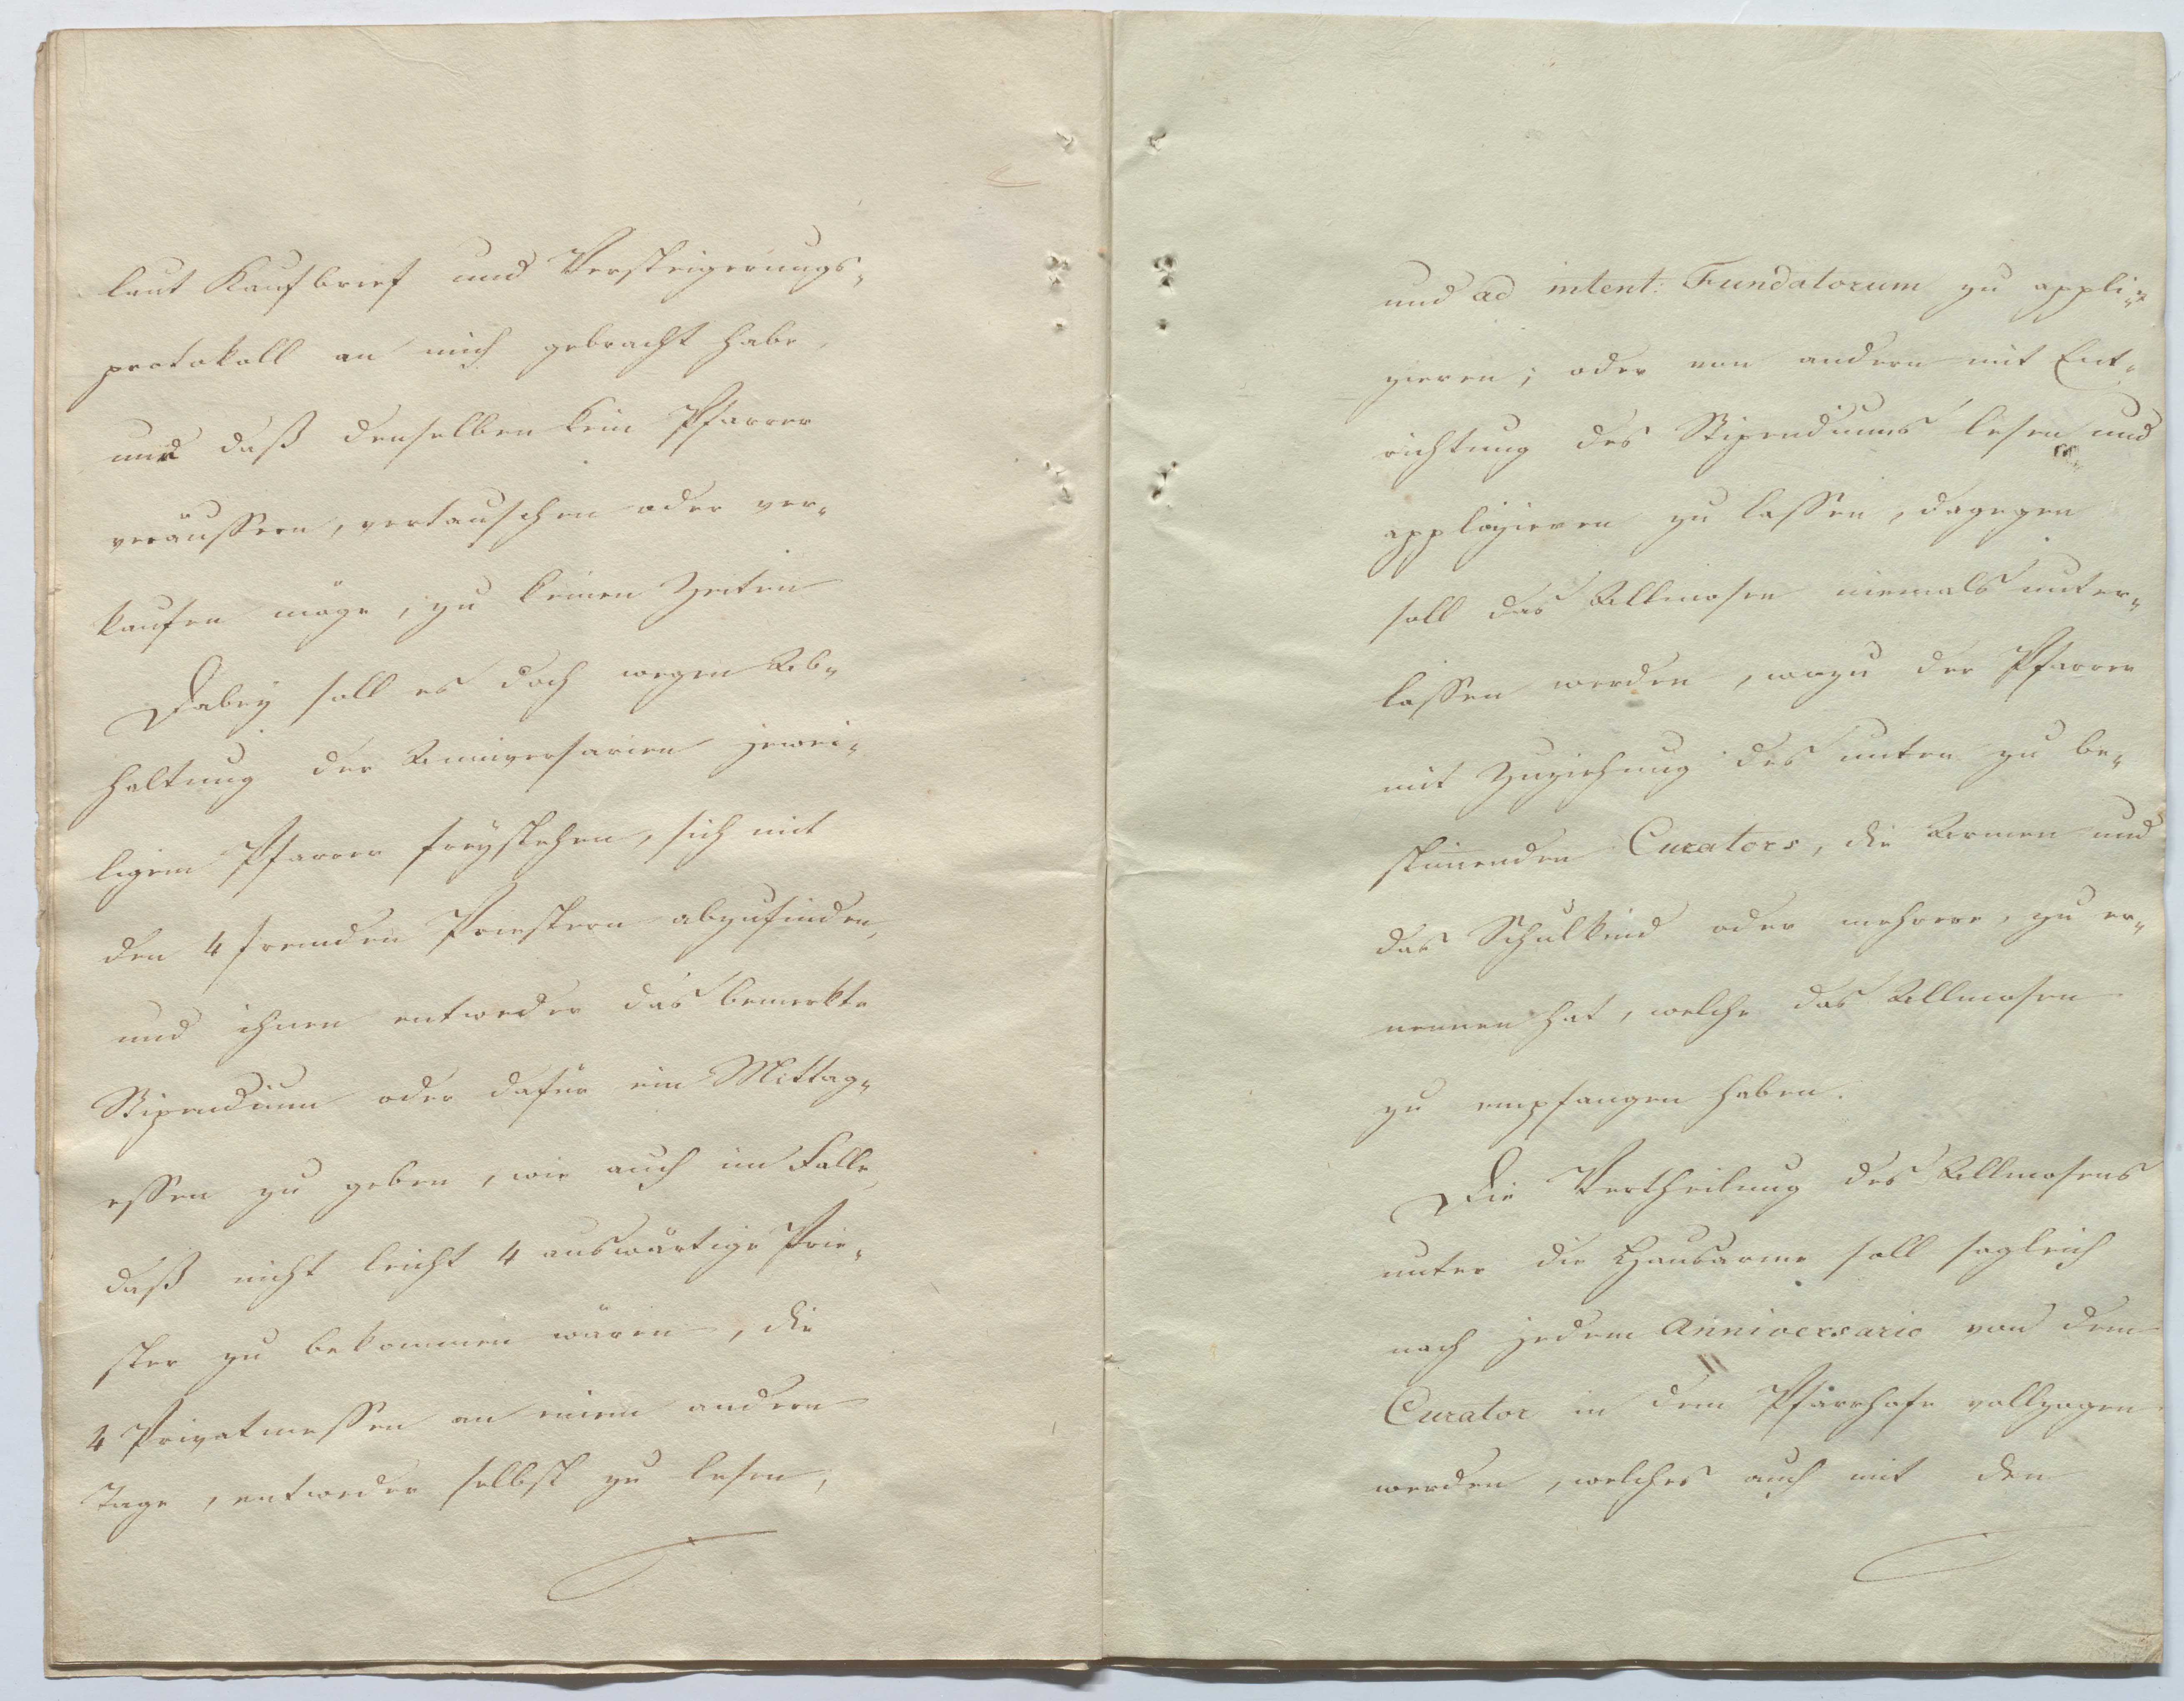 laut Kaufbrief und Versteigerungs-
protokoll an mich gebracht habe,
und daß denselben kein Pfarrer
veräussern, vertauschen oder ver-
kaufen möge, zu keinen Zeiten
Dabey soll es doch wegen Ab-
haltung der Anniversarien jewei-
ligem Pfarrer freystehen, sich mit
den 4 fremden Priestern abzufinden,
und ihnen entweder das bemerkte
Stipendium oder dafür ein Mittag-
essen zu geben, wie auch im Falle,
daß nicht leicht 4 auswärtige Prie-
ster zu bekommen wären, die
4 Privatmessen an einem andern
Tage, entweder selbst zu lesen,
und ad intent: Fundatorum zu appli-
zieren; oder von andern mit Ent-
richtung des Stipendiums lesen und
applizieren zu lassen, dagegen
soll das Allmosen niemals unter-
lassen werden, wozu der Pfarrer
mit Zuziehung des unten zu be-
stimenden Curators, die Armen und
das Schulkind oder mehrere, zu er-
nennen hat, welche das Allmosen
zu empfangen haben.
Die Vertheilung des Allmosens
unter die Hausarme soll sogleich
nach jedem Anniversario von dem
Curator in dem Pfarrhofe vollzogen
werden, welches auch mit den